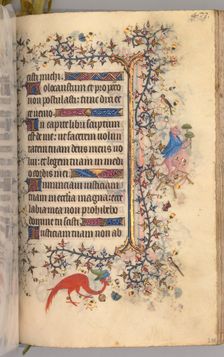 cisti michi.
holocaustum et pro pec
non postulasti: tunc dixi ec
ce venio.
In capite libri scriptum
est de me: ut facerem volun
tatem tuam deus meus vo
lui: et legem tuam in medi
o cordis mei
Annunciaui iusticiam
tuam in ecclesia magna: ecce
labia mea non prohibebo
domine tu scisti.
Iusticiam tuam non ab